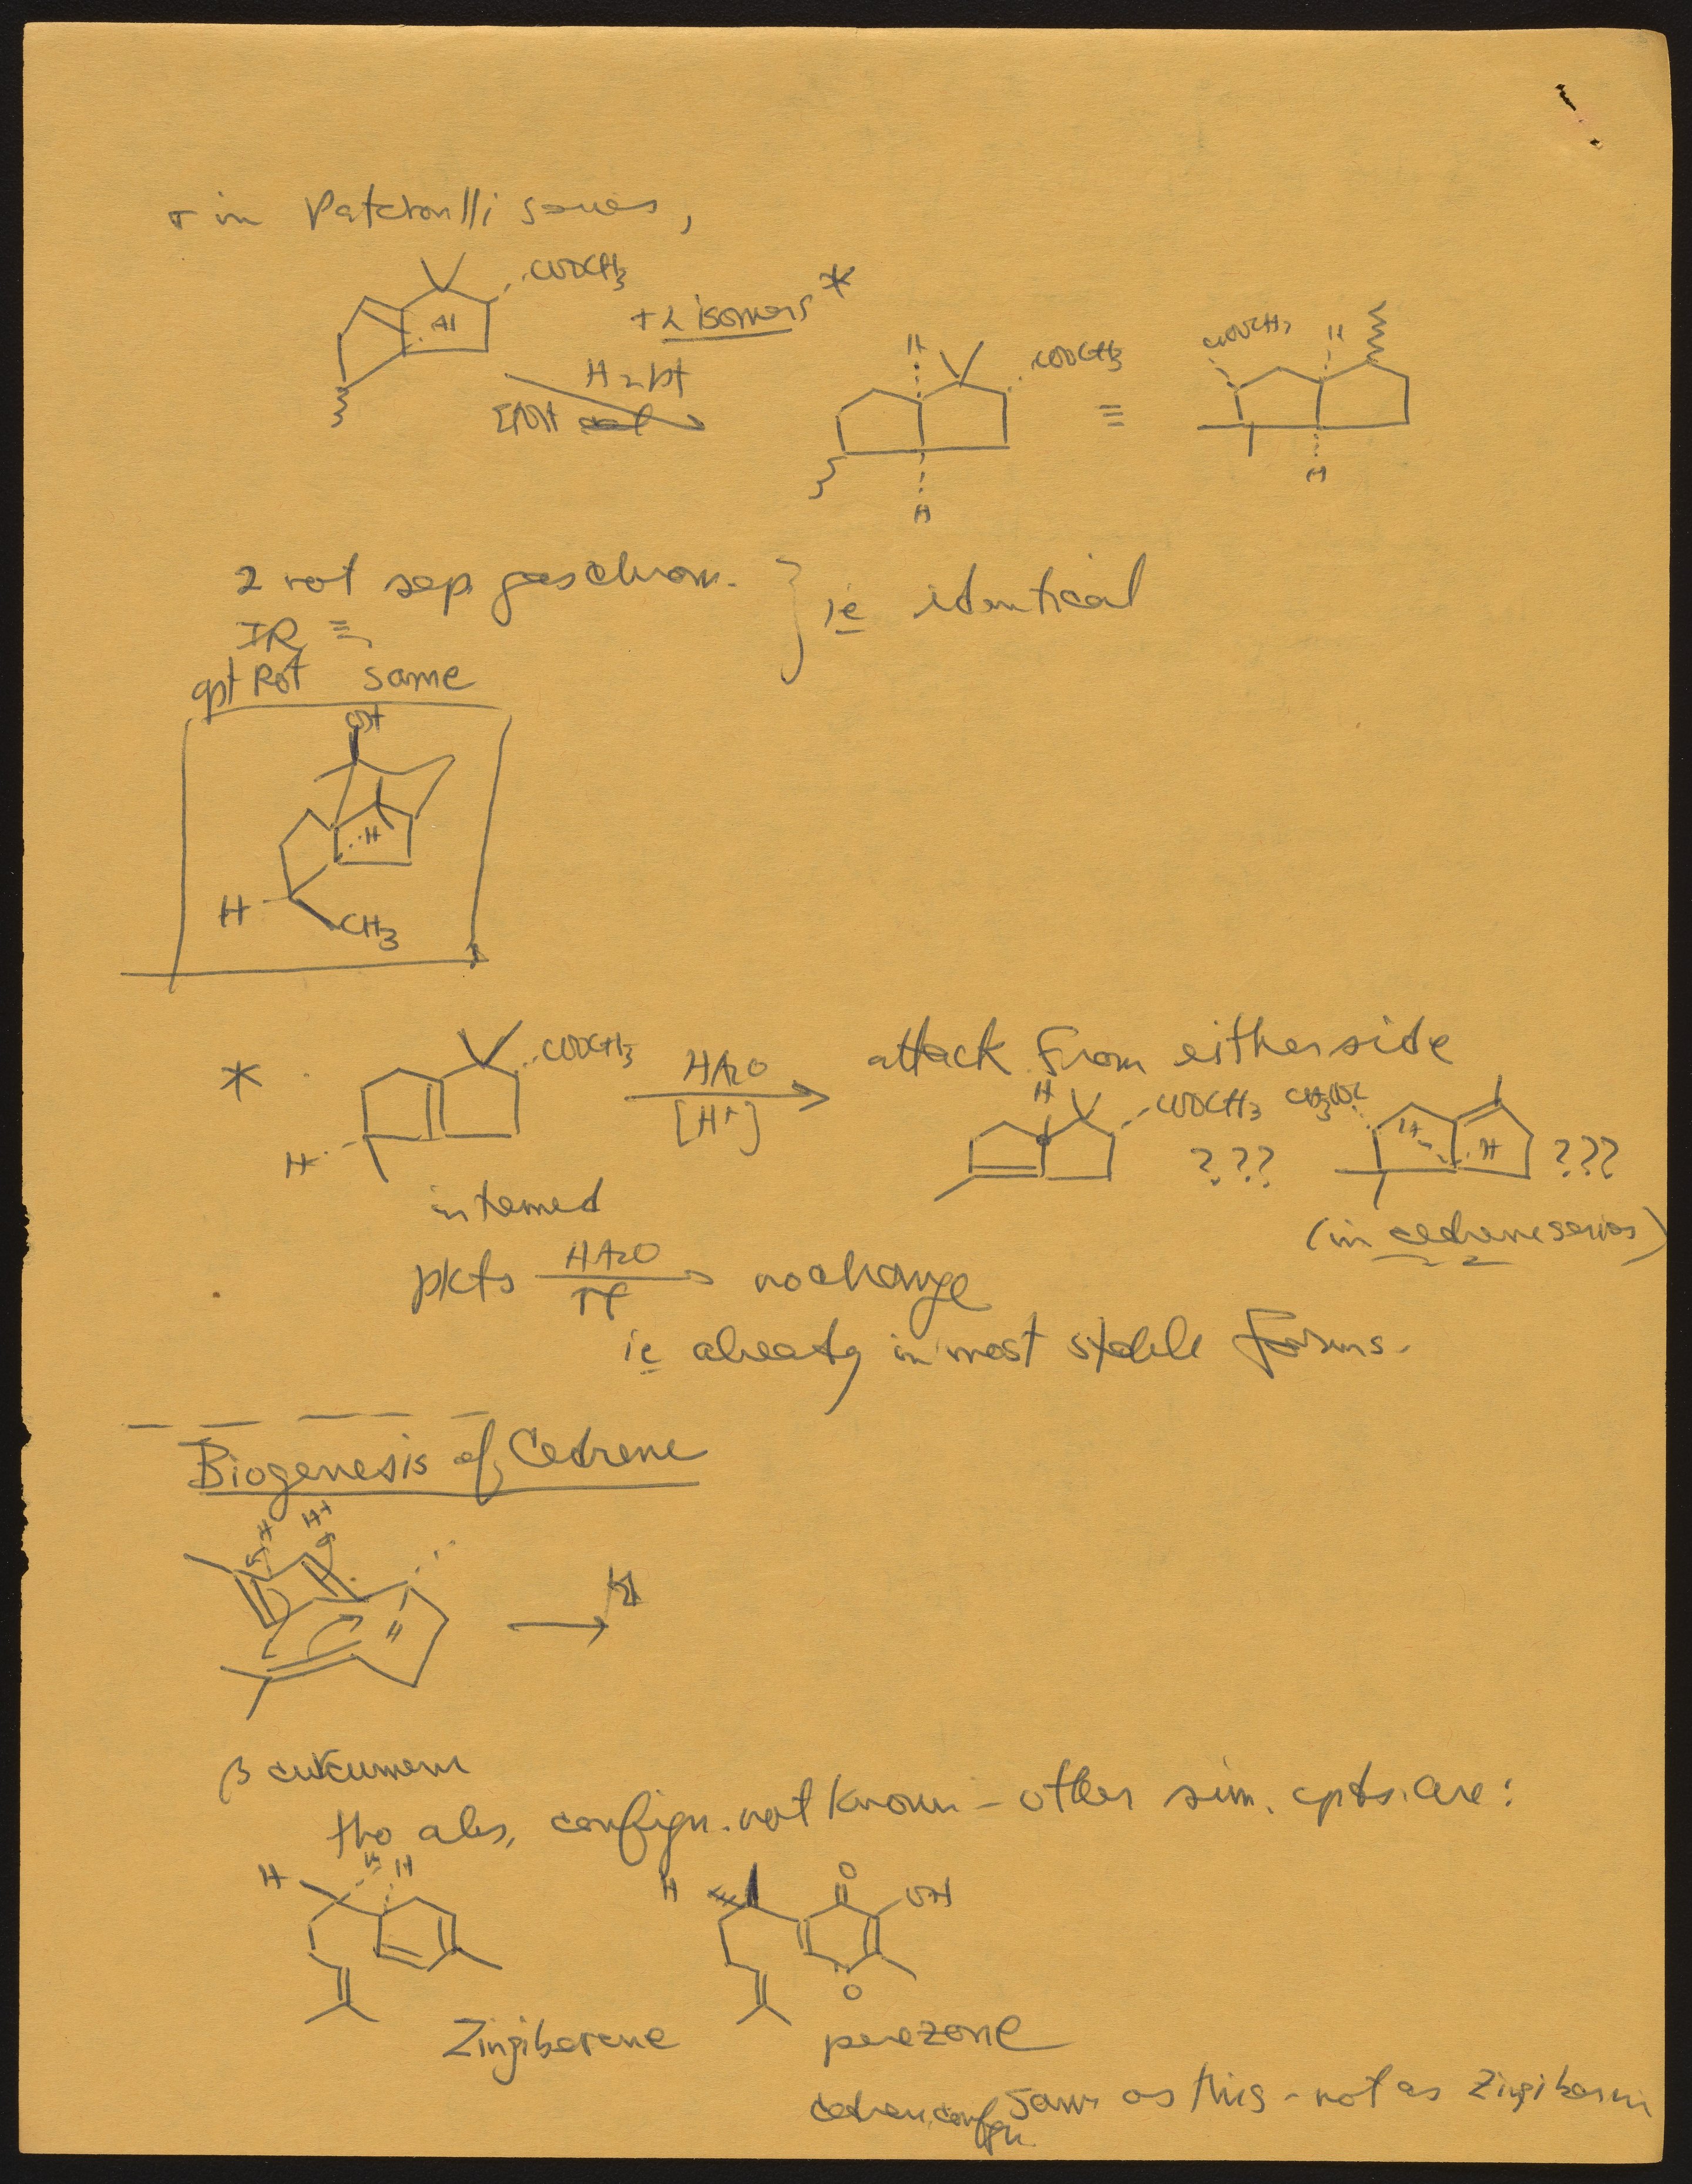 in Patchoulli series,
COOCH3
+ 2 isomers *
H
H2 Pt
EtOH
COOCH3
≡
COOCH3
H
H
H
2 not sep gas chrom. } ie identical
IR ≡
opt Rot same
H
H
CH3
* COOCH3 HA2O [H+] attack from either side
H
H COOCH3 ??? CH3OOC H H ???
intermed
(in cedrene series)
pkts HA2O no change
ie already in most stable forms.
Biogenesis of Cedrene
H+ H+
β curcumene
tho abs. config. not known - other sim. cpds. are:
H H
H O OH
O
Zingiberene perezone
cedrene config same as this - not as Zingiberene